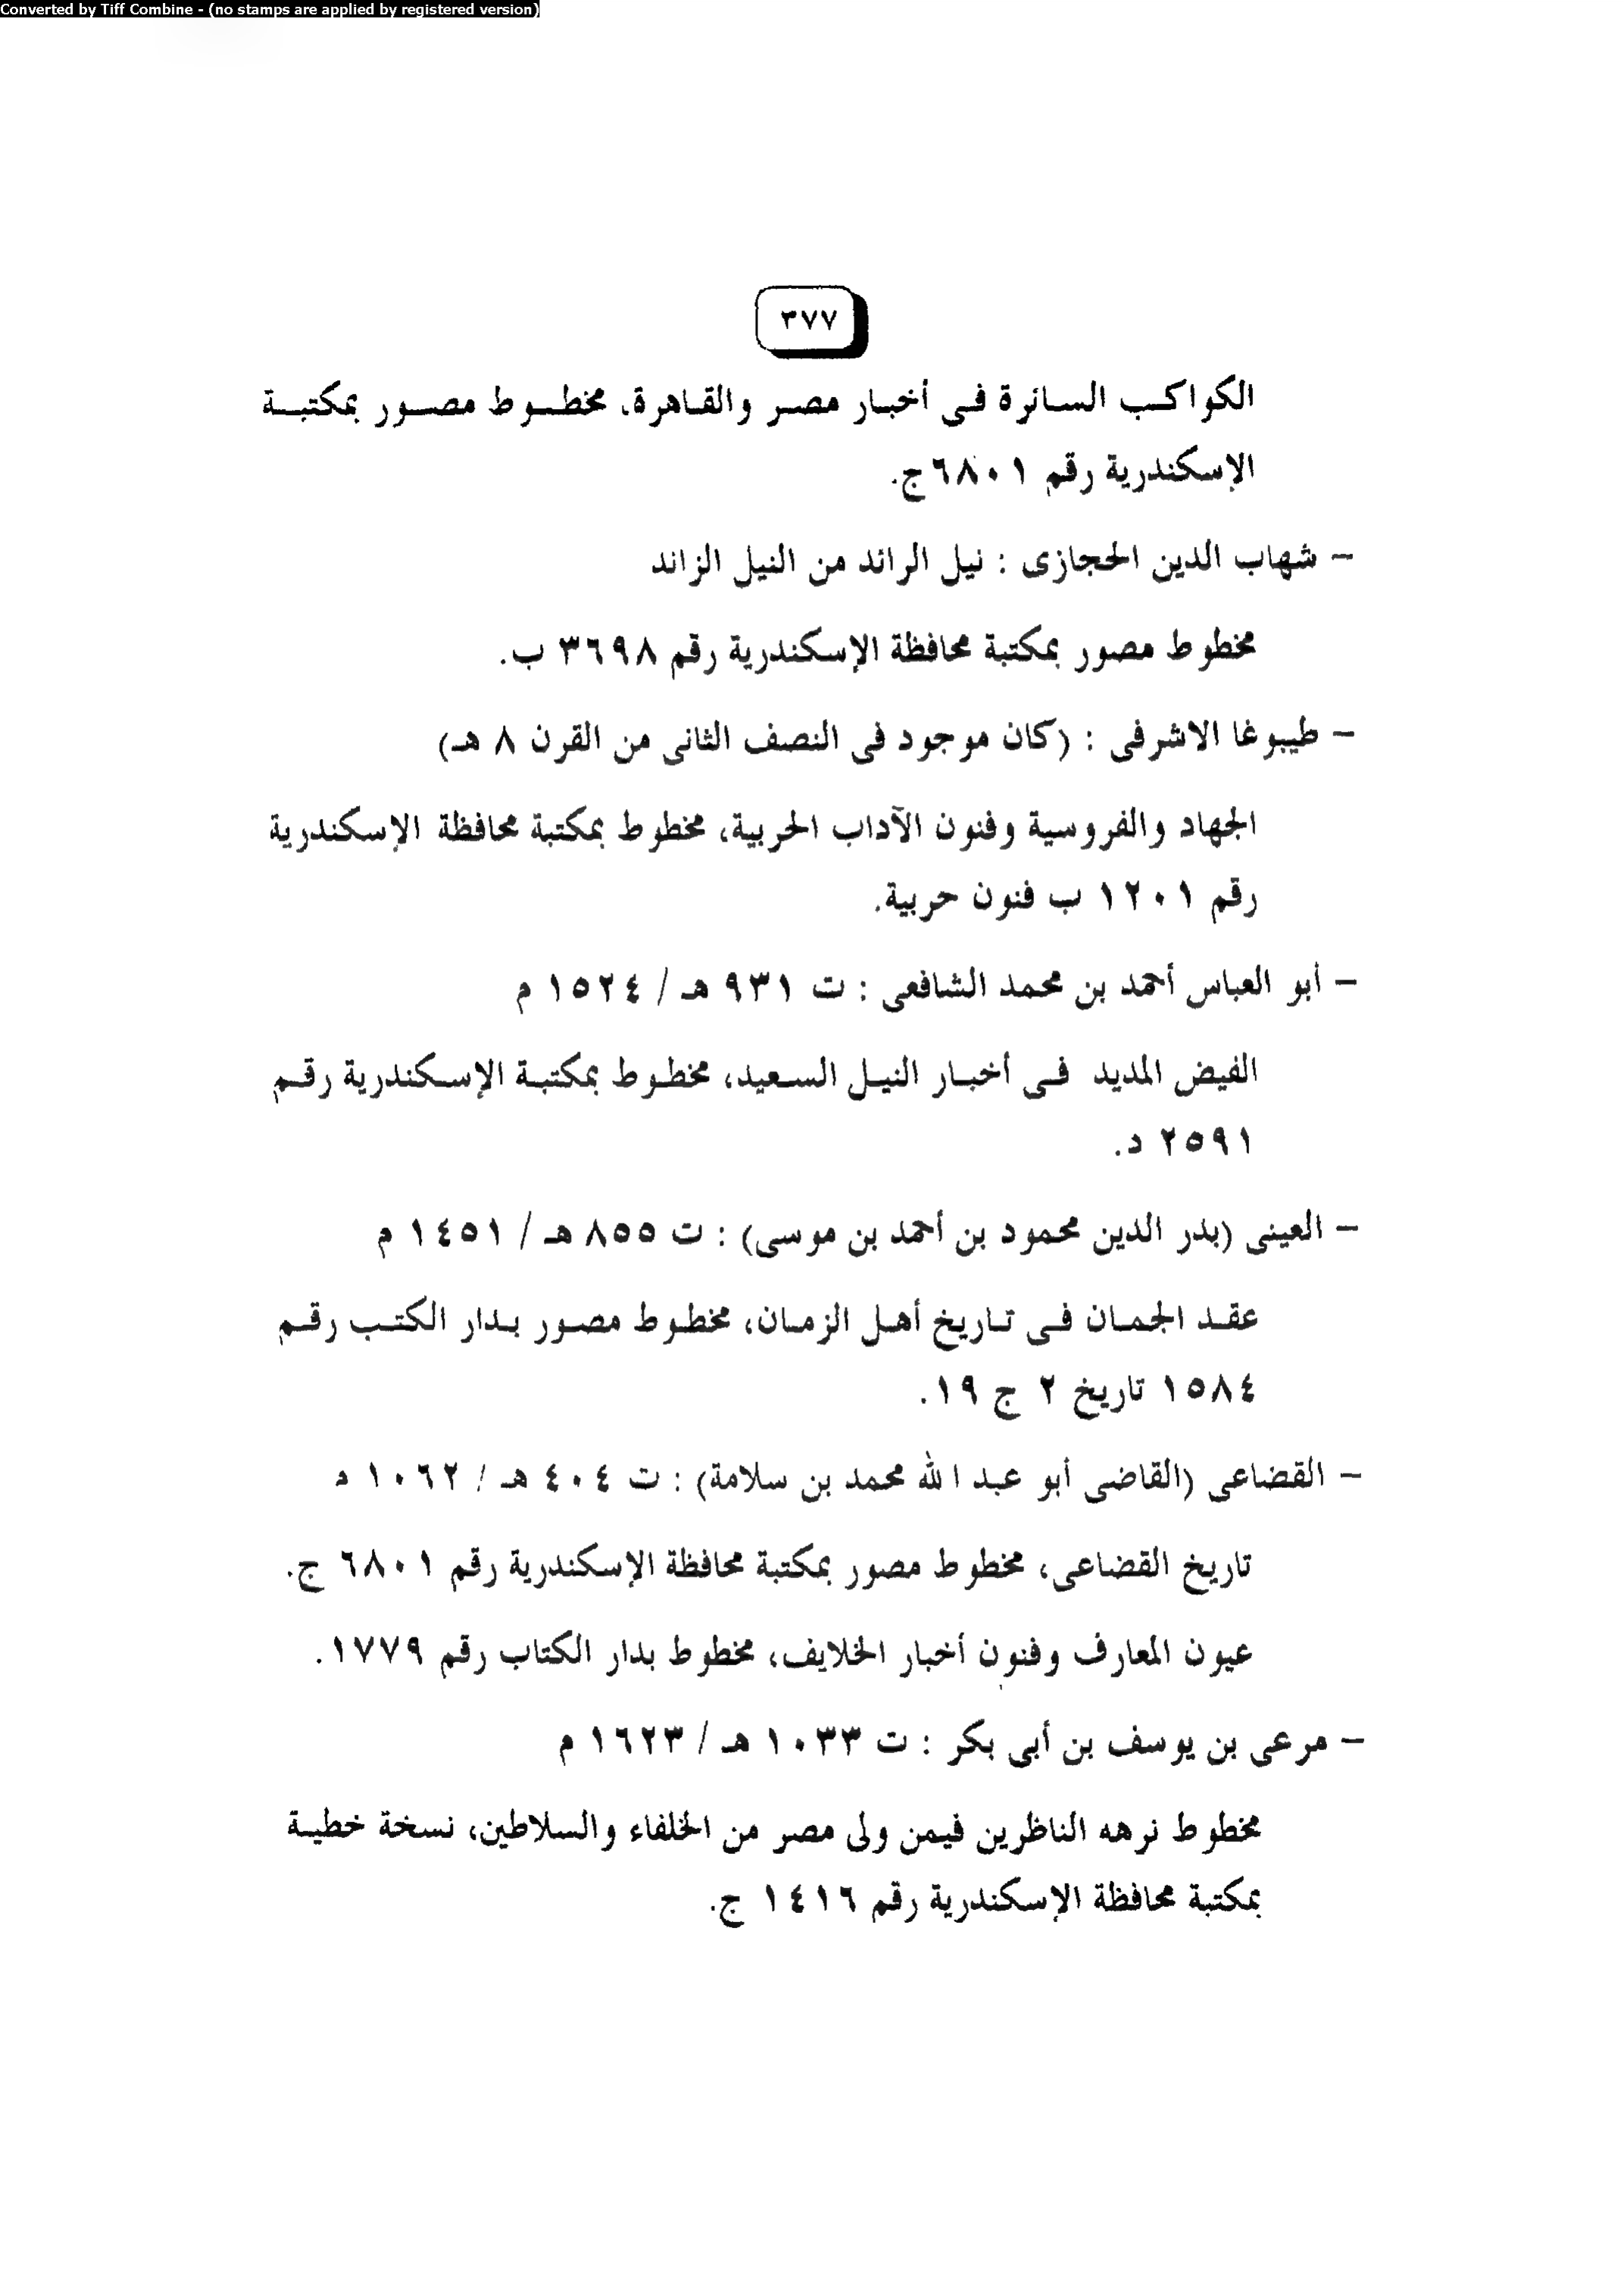 Converted by Tiff Combine - (no stamps are applied by registered version)
٣٧٧
الكواكب السائرة فى أخبار مصر والقاهرة، مخطوط مصور بمكتبة
الإسكندرية رقم ٦٨٠١ج.
– شهاب الدين الحجازى : نيل الرائد من النيل الزائد
مخطوط مصور بمكتبة محافظة الإسكندرية رقم ٣٦٩٨ ب.
– طيبوغا الاشرفى : (كان موجود فى النصف الثانى من القرن ٨ هـ)
الجهاد والفروسية وفنون الآداب الحربية، مخطوط بمكتبة محافظة الإسكندرية
رقم ١٢٠١ ب فنون حربية.
– أبو العباس أحمد بن محمد الشافعى : ت ٩٣١ هـ / ١٥٢٤ م
الفيض المديد فى أخبار النيل السعيد، مخطوط بمكتبة الإسكندرية رقم
٢٥٩١ د.
– العينى (بدر الدين محمود بن أحمد بن موسى) : ت ٨٥٥ هـ / ١٤٥١ م
عقد الجمان فى تاريخ أهل الزمان، مخطوط مصور بدار الكتب رقم
١٥٨٤ تاريخ ٢ ج ١٩.
– القضاعى (القاضى أبو عبد الله محمد بن سلامة) : ت ٤٠٤ هـ / ١٠٦٢ م
تاريخ القضاعى، مخطوط مصور بمكتبة محافظة الإسكندرية رقم ٦٨٠١ ج.
عيون المعارف وفنون أخبار الخلايف، مخطوط بدار الكتاب رقم ١٧٧٩.
– مرعى بن يوسف بن أبى بكر : ت ١٠٣٣ هـ / ١٦٢٣ م
مخطوط نرهه الناظرين فيمن ولى مصر من الخلفاء والسلاطين، نسخة خطية
بمكتبة محافظة الإسكندرية رقم ١٤١٦ ج.